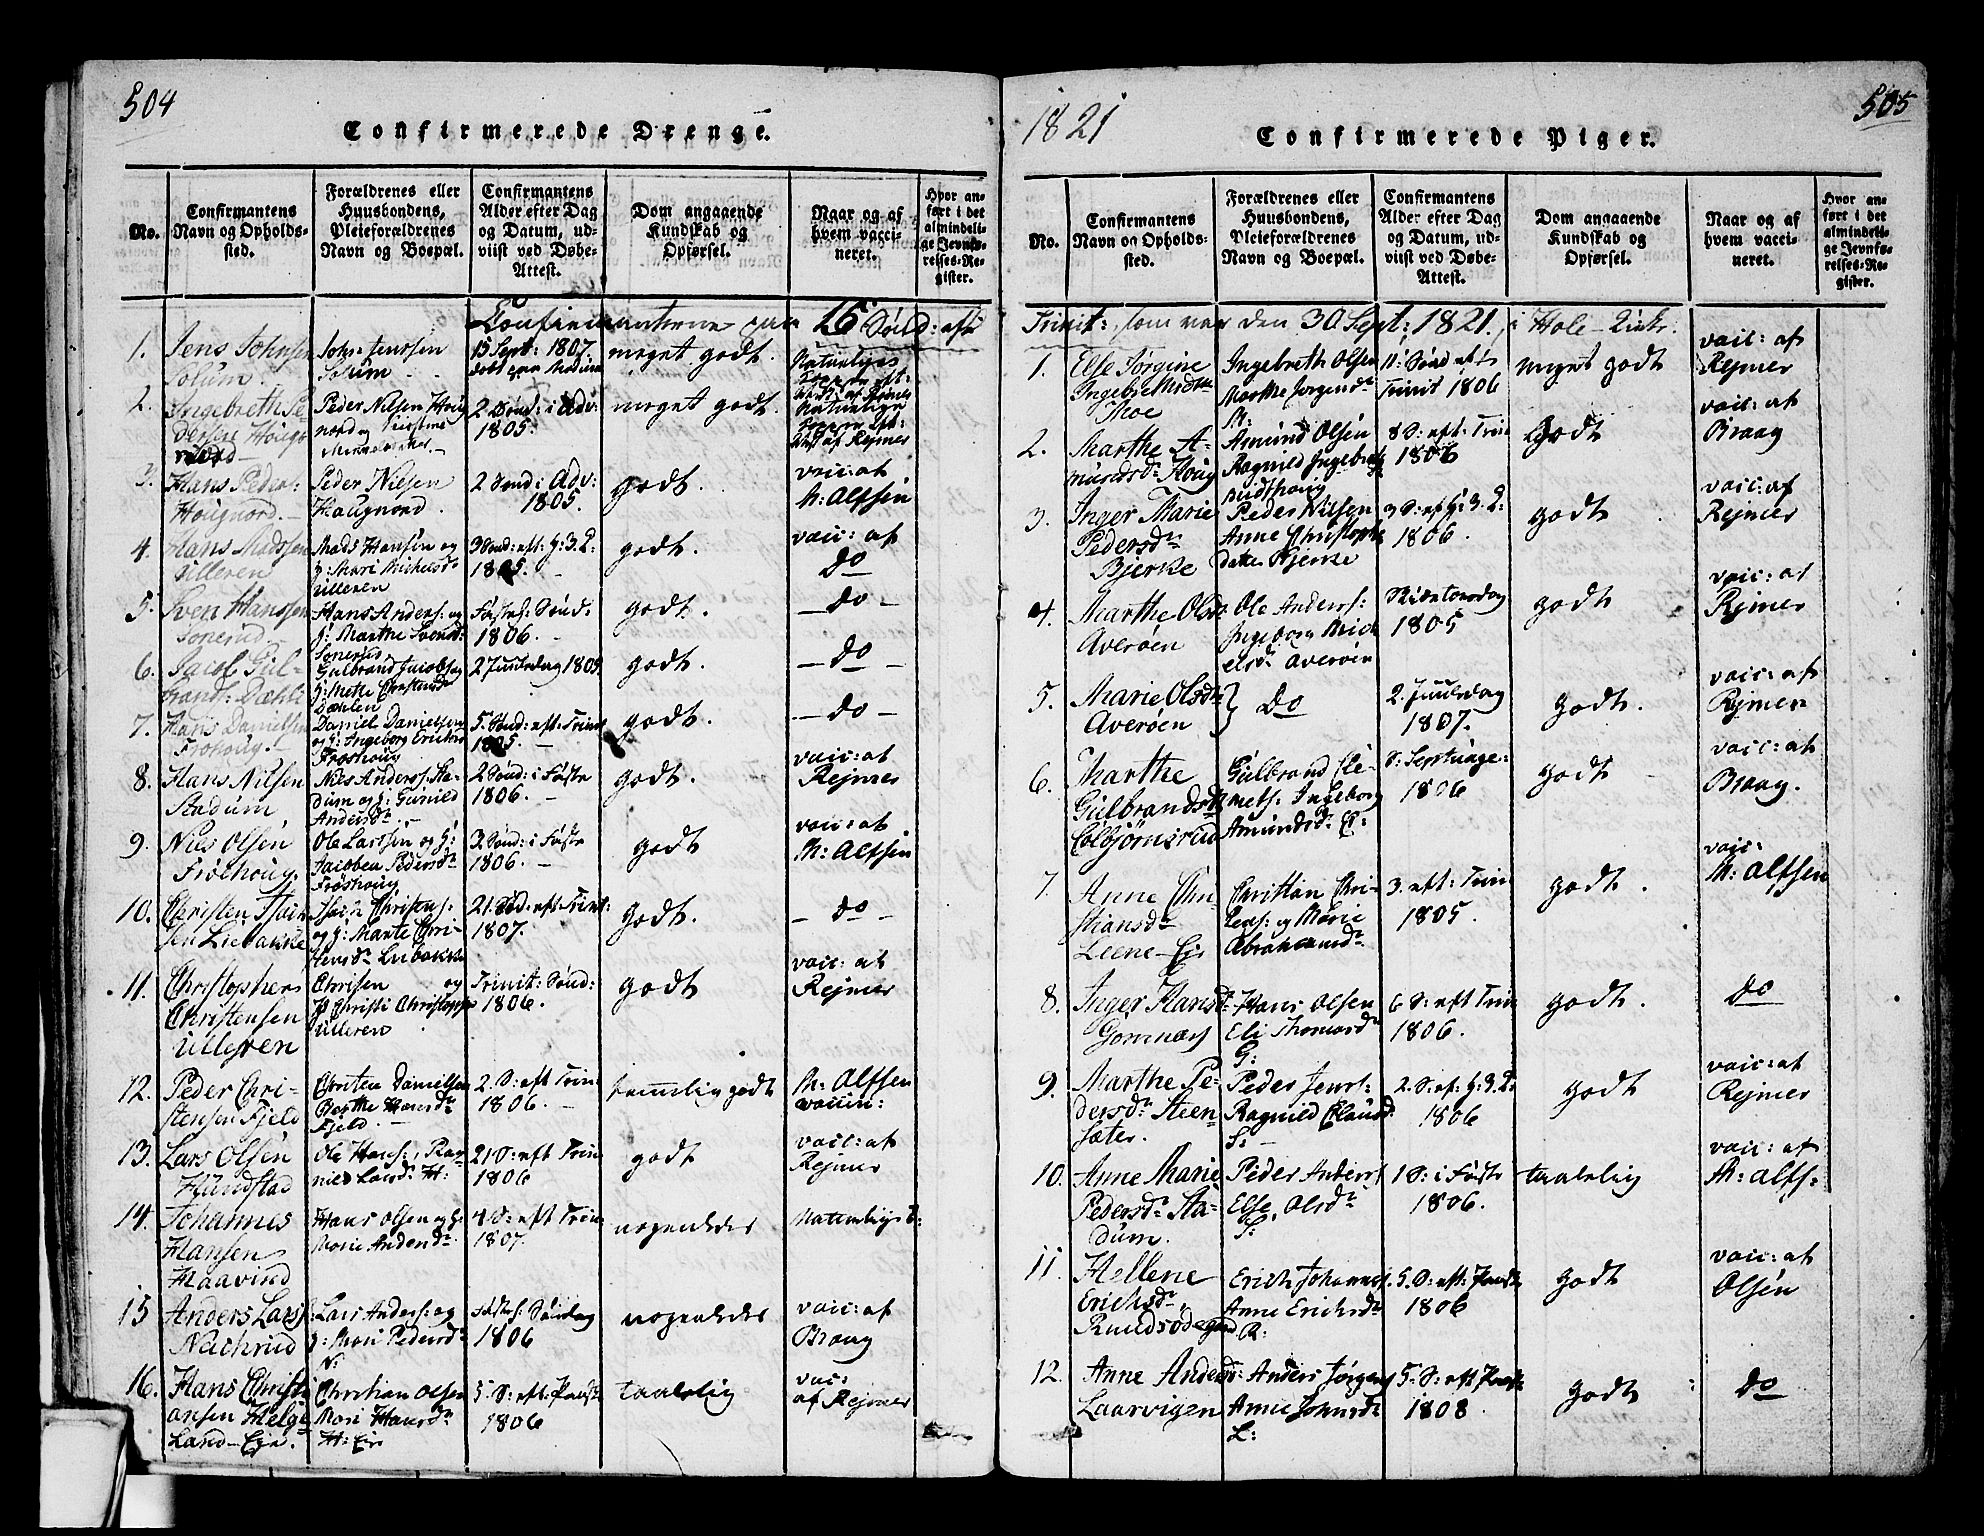 504
Confirmerede Drenge.
No.
Confirmantens
Navn og Opholds-
sted.
Forældrenes eller
Huusbondens,
Pleieforældrenes
Navn og Boepæl.
Confirmantens
Alder efter Dag
og Datum, ud-
viist ved Døbe-
Attest.
Dom angaaende
Kundskab og
Opførsel.
Naar og af
hvem vacci-
neret.
Hvor an-
ført i det
almindeli-
ge Jevnfø-
relses-Re-
gister.
Confirmanterne paa 15 Sønd: eft
1.
Jens Johnsen
Solum.
John Jenssen
Solum
15 Sept: 1807.
døbt
meget godt.
Naturlige
2.
Ingebreth Pe-
dersen Houg-
nord
Peder Nilsen Houg
nord og
2 Sønd: i Adv.
1805.
meget godt.
Naturlige
af Rejmer
3.
Hans Peders:
Hougnord.
Peder Nilsen
Hougnord.
2 Sønd: Adv:
1805.
godt.
vacc: af
M: Alfsen
4.
Hans Madssen
Ulleren
Mads Hansen og
H: Mari Michelsd
Ulleren
3 Sønd: eft: H: 3. K:
1805.
godt.
vacc: af
Do
5.
Sven Hanssen
Sonerud
Hans Anders: og
H: Marthe Svensd:
Sonerud
Fastel: Sønd:
1806.
godt.
- Do -
6.
Jacob Gul-
brand: Dæhli
Gulbrand Jacobs og
H: Mette Christensd
Dæhlen
2 Juuledag 1805
godt.
- Do
7.
Hans Danielsen
Froshoug.
Daniel Danielsen
og H: Ingeborg Ericksd
Froshoug
5. Sønd: eft: Trinit
1805.
godt.
- Do -
8.
Hans Nilsen
Stadum
Niels Anderss: Sta-
dum og H: Gunild
Andersd:
2 Sønd: i Faste
1806.
godt.
vacc: af
Rejmer
9.
Nils Olsen
Froshoug.
Ole Larssen og H:
Jacobea Pedersd:
Froshoug
3. Sønd: i Faste
1806.
godt
vacc: af
M: Alfsen
10.
Christen
Liebakke
Christens:
og H: Marte Chri-
stensd: Liebakke
21. Sød: eft: Trinit:
1807.
godt.
- Do -
11.
Christophers
Christensen
Ulleren
Chrisen og
H Christi Christophers
Ulleren
Trinit: Sønd:
1806.
godt
vacc: af
Rejmer
12.
Peder Chri-
stensen Fjeld
Christen Danielsen
Berthe Hansd:
Fjeld.
2. S: eft Trin
1806.
temmelig godt
M: Alfsen
vaccin:
13.
Lars Olsen
Hundstad
Ole Hans:, Rag-
nild Larsd: H:
21 S: eft Trin
1806
godt
vacc: af
Rejmer
14.
Johannes
Hansen
Haavind
Hans Olsen og H:
Marie Andersd:
4 S: eft Trin
1807.
nogenledes
Naturlige
15
Anders Lars:
Nachrud
Lars Anders: og
H: Mari Pedersd:
N:
Søndag
1806
nogenledes
vacc: af
Braag
16.
Hans Christi
ansen Helge
land-Eje.
Christian Olsen
Mari Hansd:
H: Eje
5. S: eft: Paask
1806
taalelig
vacc:
af Rejmer
505
1821
Confirmerede Piger.
No.
Confirmantens
Navn og Opholds-
sted.
Forældrenes eller
Huusbondens,
Pleieforældrenes
Navn og Boepæl.
Confirmantens
Alder efter Dag
og Datum, ud-
viist ved Døbe-
Attest.
Dom angaaende
Kundskab og
Opførsel.
Naar og af
hvem vacci-
neret.
Hvor an-
ført i det
almindeli-
ge Jevnfø-
relses-Re-
gister.
Trinit:, som var den 30 Sept: 1821. i Hole-Kirke.
1.
Else Jørgine
Ingebrethsdtr
Moe
Ingebreth Olsen
Marthe Jørgensd:
M:
11: Sønd eft
Trinit 1806
meget godt
vacc: af
Rejmer
2.
Marthe A-
mundsd: Houg
Amund Olsen
Ragnild Ingebret
8 S: eft: Trin
1806
Godt
vacc: af
Braag
3.
Inger Marie
Pedersdr
Bjerke
Peder Nilsen
Anne Christophe
datter Bjerke
3 S: eft H: 3. K:
1806.
godt
vacc: af
Rejmer
4.
Marthe Olsd
Averøen
Ole Anders:
Ingeborg Mich
elsd: Averøen
Skiertorsdag
1805
godt
vacc: af
Rejmer
5.
Marie Olsdtr
Averøen
} Do
2. Juuledag
1807.
godt.
vacc: af
Rejmer
6.
Marthe
Gulbrandsdtr
Colbjørnsrud
Gulbrand Cle-
mets: Ingeborg
Amundsd: C:
S: Septuage:
1806
godt
vacc: af
Braag.
7.
Anne Chri
stiansdr
Leene-Eje
Christian Chri-
og Marie
Abrahamsdr.
3. eft: Trin
1805.
godt.
vacc:
M: Alfsen
8.
Inger Hansd:
Gomnæs
Hans Olsen
Eli Thomasdr
G:
6 S: eft Trin
1806.
godt.
Do
9.
Marthe Pe-
dersdr Steen
sæter.
Peder Jens:
Ragnild Clausd:
S: -
2. S: ef: H: 3. K:
1806
godt
vacc: af
Rejmer
10.
Anne Marie
Pedersdr Sta-
dum.
Peder Anders:
Else, Olsdr
S:
1 S: i Faste
1806.
taalelig
vacc: af
M: Alfs:
11.
Hellene
Erichsdr
Rundsødegaard.
Erich Johannes:
Anne Erichsdr
R:
5. S: eft: Paask
1806
godt
vacc: af
Olsen
12.
Anne Andersd:
Laarvigen
Anders Jørgens
Anne Johnsdr
L:
5. S: eft Paask
1808.
godt
Do